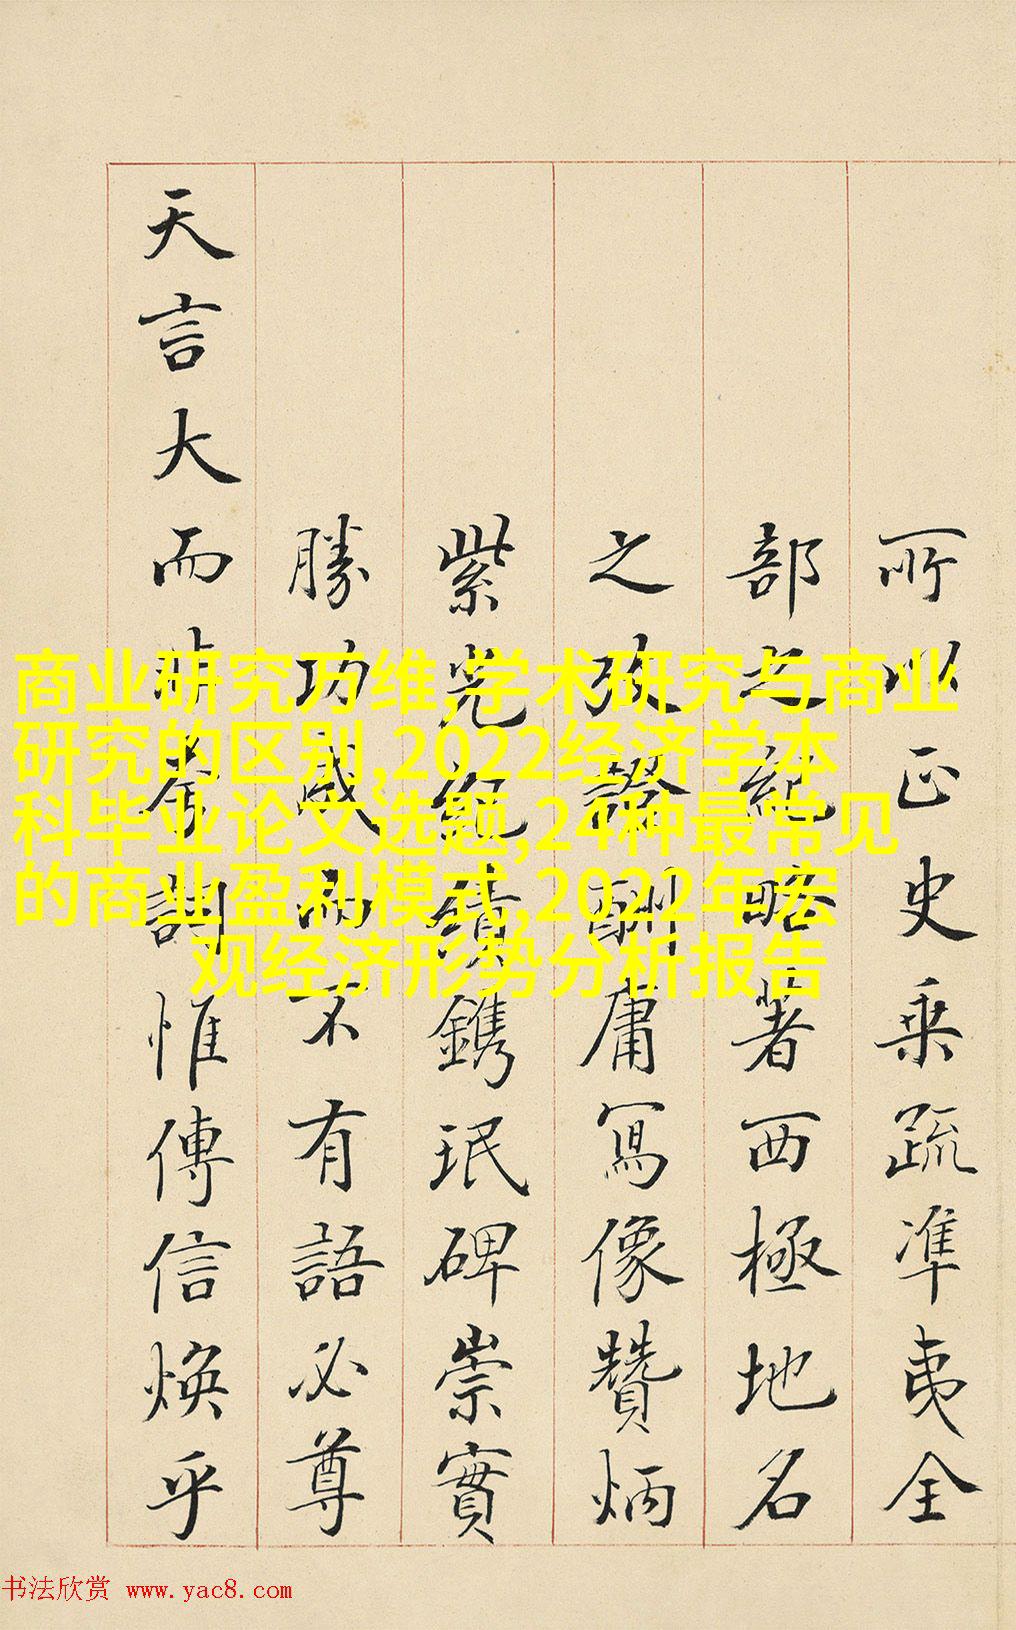 所以正史乗疏準夷全
部之紀略著西極地名
之攷證酬庸寫像贊炳
紫光紀績鐫珉碑崇實
勝功成而不有語必尊
天言大而非夸詞惟傳信煥乎
商业研究万维,学术研究与商业
研究的区别,2022经济学本
科毕业论文选题,24种最常见
的商业盈利模式,2022年宏
观经济形势分析报告
书法欣赏 www.yac8.com